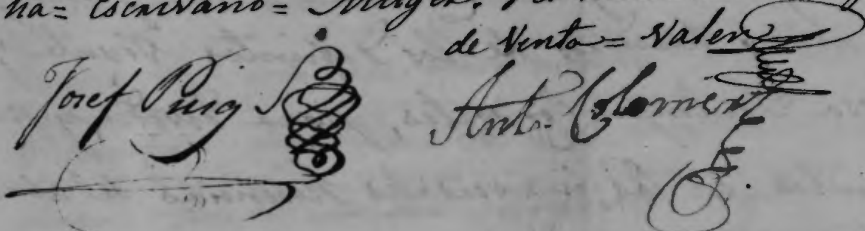 na= Escrivano= Muger.
de Venta= Valen
Josef Puig
Ant. Colomer